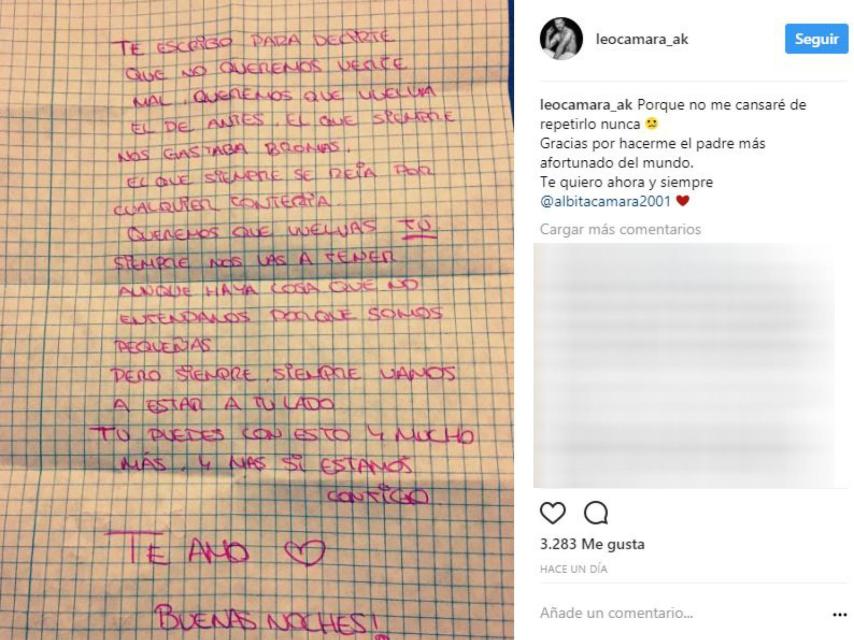 TE ESCRIBO PARA DECIRTE
QUE NO QUEREMOS VERTE
MAL, QUEREMOS QUE VUELVA
EL DE ANTES, EL QUE SIEMPRE
NOS GASTABA BROMAS.
EL QUE SIEMPRE SE REÍA POR
CUALQUIER TONTERÍA.
QUEREMOS QUE VUELVAS TÚ
SIEMPRE NOS VAS A TENER
AUNQUE HAYA COSA QUE NO
ENTENDAMOS PORQUE SOMOS
PEQUEÑAS
PERO SIEMPRE, SIEMPRE VAMOS
A ESTAR A TU LADO
TU PUEDES CON ESTO Y MUCHO
MÁS, Y MAS SI ESTAMOS
CONTIGO
TE AMO ♡
BUENAS NOCHES!
leocamara_ak
Seguir
leocamara_ak Porque no me cansaré de
repetirlo nunca 😢
Gracias por hacerme el padre más
afortunado del mundo.
Te quiero ahora y siempre
@albitacamara2001 ❤
Cargar más comentarios
3.283 Me gusta
HACE UN DÍA
Añade un comentario...